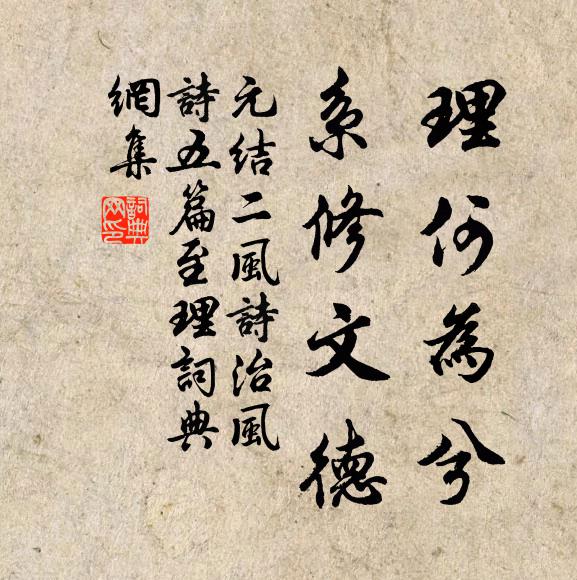 理何為兮
系修文德
元結二風詩治風
詩五篇至理詞典
網集
詞典
網印